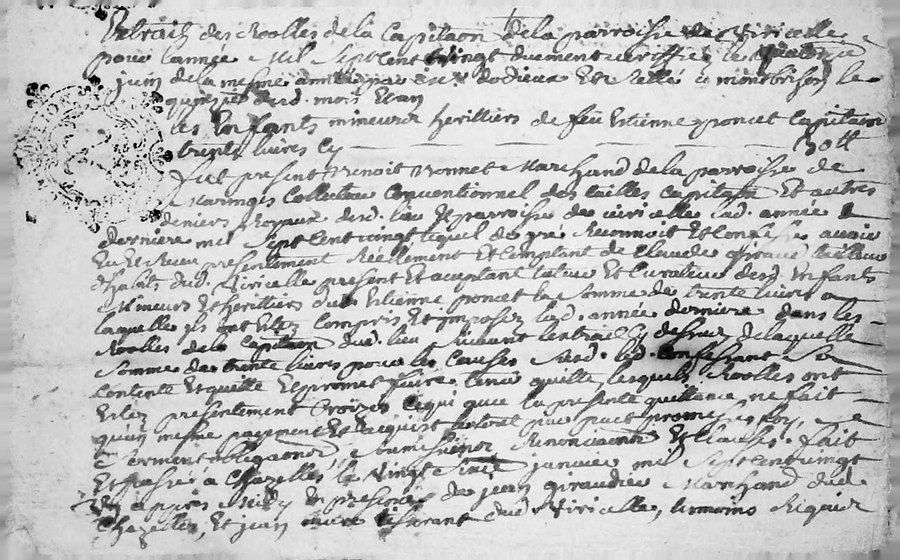 Extrait des Roolles de la Capitaon de la parroisse de Viricelle
pour l'année Mil Sept cent vingt duement veriffié le
juin de la mesme année par Dodieux Et Scellé a montbrison le
dud. mois Et an
Les Enfants mineurs heritiers de feu Estienne poncet Capitaon
trente livres Cy 30 ll
fut present Benoit Bonnet Marchand de la parroisse de
Maringes Collecteur Conventionnel des tailles Capitaon Et autres
deniers Royaux dud. lieu Et parroisse de viricelle lad. année
derniere mil Sept Cent vingt lequel de gré Reconnoit Et Confesse avoir
Eu Et Receu presentement Reellement Et Comptant de Claude Giraud tailleur
d'habits dud. Viricelle present Et acceptant tuteur Et Curateur desd. Enfants
Mineurs Et heritiers dud. Estienne poncet la Somme de trente livres a
laquelle ils ont Estez Compris Et imposez lad. année derniere dans les
Roolles de la Capitaon dud. lieu Suivant l'extrait Cy dessus de laquelle
Somme de trente livres pour les Causes Susd. led. Confessant Se
Contente Et quitte Et promet faire tenir quitte, lesquels Roolles ont
Estez presentement Croizes Ce qui avec la presente quittance ne fait
qu'un mesme payement Et acquist par pact promesses foy,
Serment obligaons, Soumissions Renonciaons Et Clauses. fait
Et passé a Chazelles le Vingt janvier mil Sept Cent vingt
Un apres Midy En presence de jean giraudier Marchand dud.
Chazelles, Et jean tisserant dud. Viricelle, temoins Requis